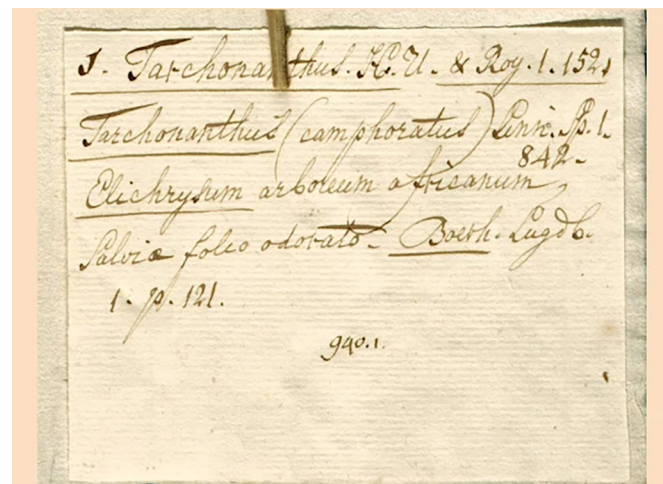 1. Tarchonanthus. H. U. & Roy. 1. 152.
Tarchonanthus (camphoratus) Linn. Sp. 1.
842.
Elichrysum arboreum africanum,
Salviæ folio odorato. Boerh. Lugdb.
1. p. 121.
940.1.